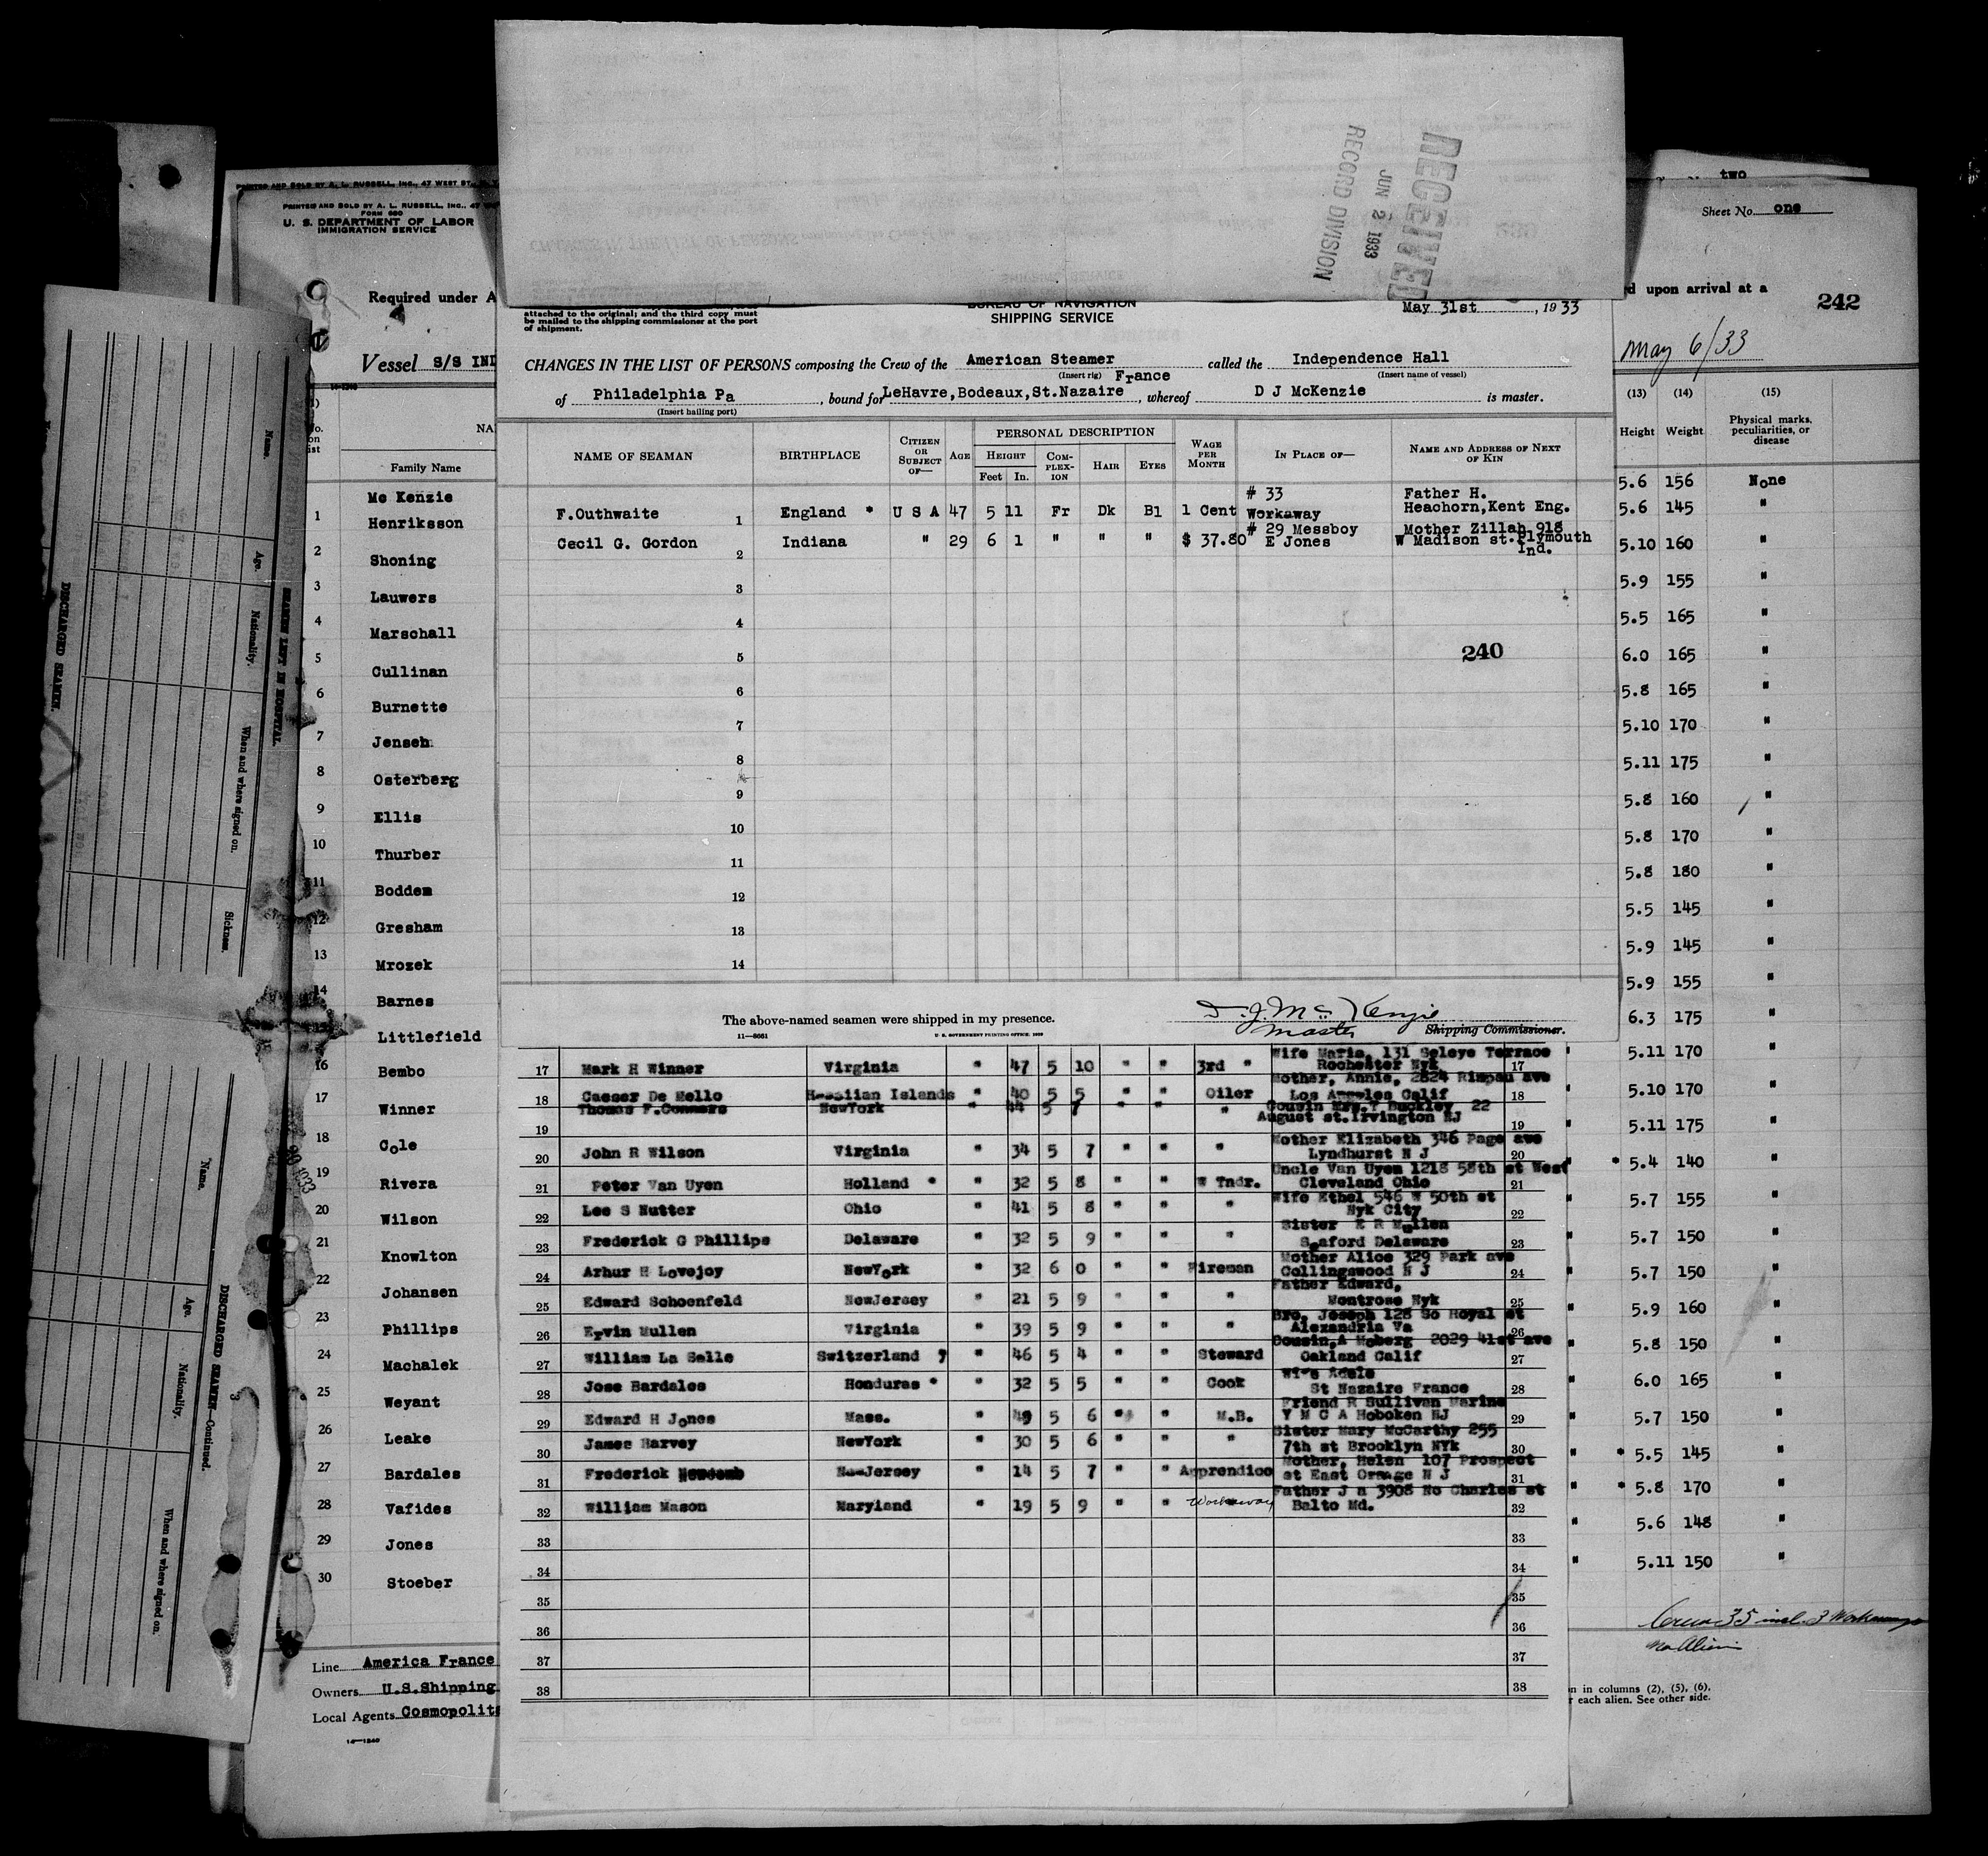 PRINTED AND SOLD BY A. L. RUSSELL, INC., 47 WEST ST.
PRINTED AND SOLD BY A. L. RUSSELL, INC., 47
FORM 680
U. S. DEPARTMENT OF LABOR
IMMIGRATION SERVICE
Required under A
Vessel S/S IND
RECEIVED
JUN 2 1933
RECORD DIVISION
two
Sheet No. one
upon arrival at a
242
May 6/33
attached to the original; and the third copy must
be mailed to the shipping commissioner at the port
of shipment.
BUREAU OF NAVIGATION
SHIPPING SERVICE
May 31st, 1933
CHANGES IN THE LIST OF PERSONS composing the Crew of the American Steamer called the Independence Hall
(Insert rig) France (Insert name of vessel)
of Philadelphia Pa, bound for LeHavre,Bodeaux,St.Nazaire, whereof D J McKenzie is master.
(Insert hailing port)
NAME OF SEAMAN BIRTHPLACE CITIZEN OR SUBJECT OF— AGE PERSONAL DESCRIPTION HEIGHT Feet In. COMPLEXION HAIR EYES WAGE PER MONTH IN PLACE OF— NAME AND ADDRESS OF NEXT OF KIN
# 33 Father H.
F.Outhwaite 1 England * U S A 47 5 11 Fr Dk Bl 1 Cent Workaway Heachorn,Kent Eng.
# 29 Messboy Mother Zillah 918
Cecil G. Gordon 2 Indiana " 29 6 1 " " " $ 37.80 E Jones W Madison st.Plymouth
Ind.
3
4
5
240
6
7
8
9
10
11
12
13
14
The above-named seamen were shipped in my presence.
D. J. McKenzie
Master Shipping Commissioner.
11—8661 U. S. GOVERNMENT PRINTING OFFICE
Wife Marie, 131 Seleye Terrace
17 Mark H Winner Virginia " 47 5 10 " " 3rd " Rochester Nyk 17
Mother, Annie, 2824 Rimpau ave
18 Caeser De Mello Hawaiian Islands " 40 5 5 " " Oiler Los Angeles Calif 18
Thomas F.Conners NewYork " 44 5 7 " " " Cousin Mrs.T Buckley 22
19 August st.Irvington NJ 19
Mother Elizabeth 346 Page ave
20 John R Wilson Virginia " 34 5 7 " " " Lyndhurst N J 20
Uncle Van Uyem 1218 58th st West
21 Peter Van Uyen Holland * " 32 5 8 " " W Tndr. Cleveland Ohio 21
Wife Ethel 546 W 50th st
22 Lee S Nutter Ohio " 41 5 8 " " " Nyk City 22
Sister E R Mullen
23 Frederick G Phillips Delaware " 32 5 9 " " " Seaford Delaware 23
Mother Alice 329 Park ave
24 Arhur H Lovejoy NewYork " 32 6 0 " " Fireman Collingswood N J 24
Father Edward,
25 Edward Schoenfeld NewJersey " 21 5 9 " " " Montrose Nyk 25
Bro, Joseph 128 So Royal st
26 Ervin Mullen Virginia " 39 5 9 " " " Alexandria Va 26
Cousin,A Moberg 2029 41st ave
27 William La Selle Switzerland " 46 5 4 " " Steward Oakland Calif 27
Wife Adele
28 Jose Bardales Honduras * " 32 5 5 " " Cook St Nazaire France 28
Friend R Sullivan Marine
29 Edward H Jones Mass. " 49 5 6 " " M.B. Y M C A Hoboken NJ 29
Sister Mary McCarthy 255
30 James Harvey NewYork " 30 5 6 " " " 7th st Brooklyn NYk 30
Mother, Helen 107 Prospect
31 Frederick Newcomb NewJersey " 14 5 7 " " Apprendice st East Orange N J 31
Father J n 3908 No Charles st
32 William Mason Maryland " 19 5 9 " " Workaway Balto Md. 32
33 33
34 34
35 35
36 36
37 37
38 38
Family Name
Mc Kenzie
1 Henriksson
2 Shoning
3 Lauwers
4 Marschall
5 Cullinan
6 Burnette
7 Jenseh
8 Osterberg
9 Ellis
10 Thurber
11 Boddem
12 Gresham
13 Mrozek
14 Barnes
Littlefield
16 Bembo
17 Winner
18 Cole
19 Rivera
20 Wilson
21 Knowlton
22 Johansen
23 Phillips
24 Machalek
25 Weyant
26 Leake
27 Bardales
28 Vafides
29 Jones
30 Stoeber
Line America France
Owners U.S.Shipping
Local Agents Cosmopolita
14—1240
(13) (14) (15)
Height Weight Physical marks, peculiarities, or disease
5.6 156 None
5.6 145 "
5.10 160 "
5.9 155 "
5.5 165 "
6.0 165 "
5.8 165 "
5.10 170 "
5.11 175 "
5.8 160 "
5.8 170 "
5.8 180 "
5.5 145 "
5.9 145 "
5.9 155 "
6.3 175 "
5.11 170 "
5.10 170 "
5.11 175 "
* 5.4 140 "
5.7 155 "
5.7 150 "
5.7 150 "
5.9 160 "
5.8 150 "
6.0 165 "
5.7 150 "
* 5.5 145 "
* 5.8 170 "
5.6 148 "
5.11 150 "
Crew 35 incl. 3 Workaways
No Aliens
in columns (2), (5), (6),
each alien. See other side.
SEAMEN LEFT IN HOSPITAL.
Name. Age. Nationality. When and where signed on. Sickness.
DISCHARGED SEAMEN.
DISCHARGED SEAMEN—Continued.
Name. Age. Nationality. When and where signed on.